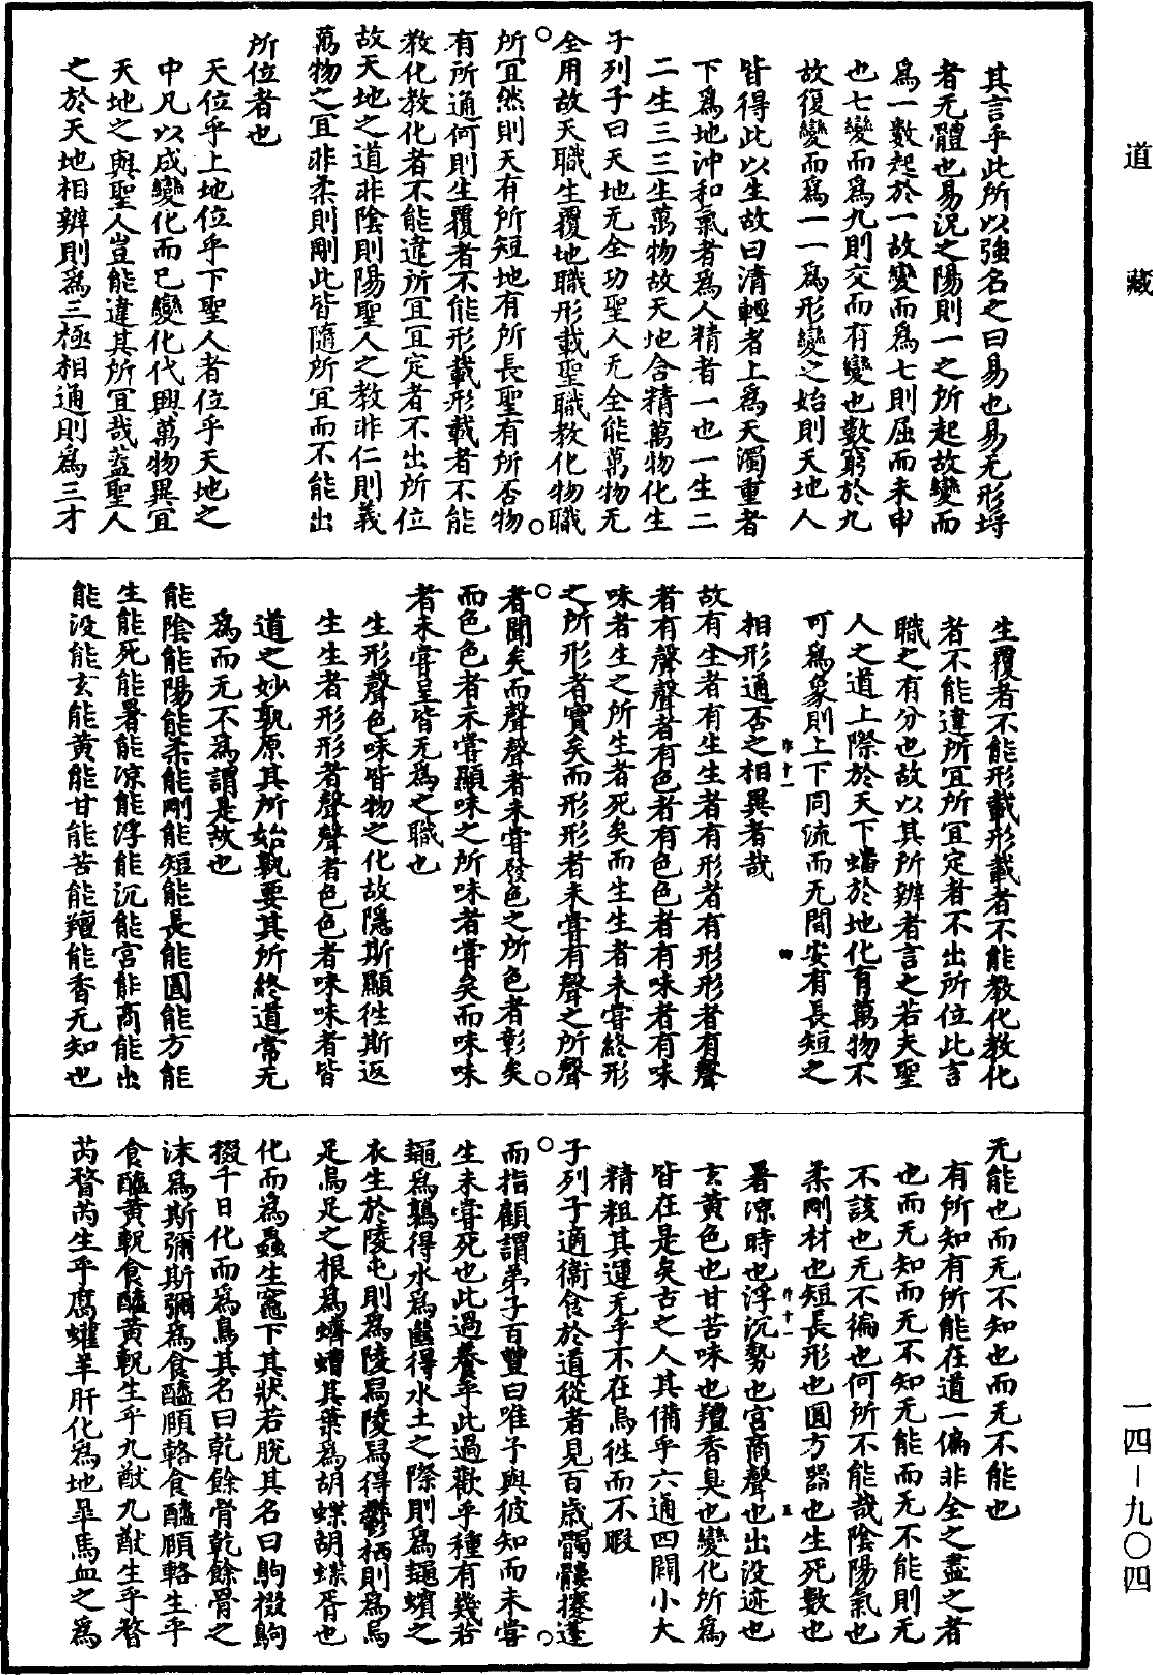 道藏
其言乎此所以強名之曰易也易无形埒
者无體也易況之陽則一之所起故變而
爲一數起於一故變而爲七則屈而未申
也七變而爲九則交而有變也數窮於九
故復變而爲一一爲形變之始則天地人
皆得此以生故曰清輕者上爲天濁重者
下爲地沖和氣者爲人精者一也一生二
二生三三生萬物故天地含精萬物化生
子列子曰天地无全功聖人无全能萬物无
全用故天職生覆地職形載聖職教化物職
所宜然則天有所短地有所長聖有所否物
有所通何則生覆者不能形載形載者不能
教化教化者不能違所宜宜定者不出所位
故天地之道非陰則陽聖人之教非仁則義
萬物之宜非柔則剛此皆隨所宜而不能出
所位者也
天位乎上地位乎下聖人者位乎天地之
中凡以成變化而已變化代興萬物異宜
天地之與聖人豈能違其所宜哉蓋聖人
之於天地相辨則爲三極相通則爲三才
生覆者不能形載形載者不能教化教化
者不能違所宜所宜定者不出所位此言
職之有分也故以其所辨者言之若夫聖
人之道上際於天下蟠於地化育萬物不
可爲象則上下同流而无間安有長短之
相形通否之相異者哉
故有生者有生生者有形者有形形者有聲
者有聲聲者有色者有色色者有味者有味
味者生之所生者死矣而生生者未嘗終形
之所形者實矣而形形者未嘗有聲之所聲
者聞矣而聲聲者未嘗發色之所色者彰矣
而色色者未嘗顯味之所味者嘗矣而味味
者未嘗呈皆无爲之職也
生形聲色味皆物之化故隱斯顯徃斯返
生生者形形者聲聲者色色者味味者皆
道之妙孰原其所始孰要其所終道常无
爲而无不爲謂是故也
能陰能陽能柔能剛能短能長能圓能方能
生能死能暑能凉能浮能沉能宮能商能出
能没能玄能黄能甘能苦能羶能香无知也
无能也而无不知也而无不能也
有所知有所能在道一偏非全之盡之者
也而无知而无不知无能而无不能則无
不該也无不徧也何所不能哉陰陽氣也
柔剛材也短長形也圓方器也生死數也
暑涼時也浮沉勢也宮商聲也出没迹也
玄黄色也甘苦味也羶香臭也變化所爲
皆在是矣古之人其備乎六通四闢小大
精粗其運无乎不在烏徃而不暇
子列子適衞食於道從者見百歲髑髏攓蓬
而指顧謂弟子百豐曰唯予與彼知而未嘗
生未嘗死也此過養乎此過歡乎種有幾若
鼃爲鶉得水爲㡭得水土之際則爲鼃蠙之
衣生於陵屯則爲陵舄陵舄得鬱栖則爲烏
足烏足之根爲蠐螬其葉爲胡蝶胡蝶胥也
化而爲蟲生竈下其狀若脫其名曰鴝掇鴝
掇千日化而爲鳥其名曰乾餘骨乾餘骨之
沫爲斯彌斯彌爲食醯頤輅食醯頤輅生乎
食醯黄軦食醯黄軦生乎九猷九猷生乎瞀
芮瞀芮生乎腐蠸羊肝化爲地皋馬血之爲
一四—九〇四